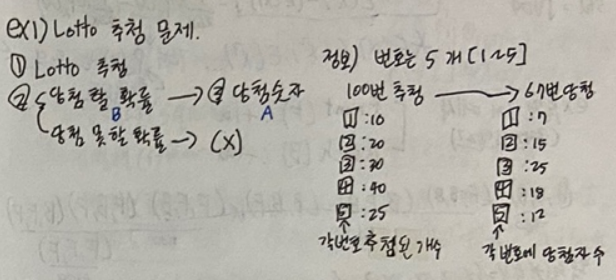 ex1) Lotto 추첨 문제.
① Lotto 추첨
② 당첨 할 확률 → ③ 당첨숫자
B A
당첨 못할 확률 → (X)
정보) 번호는 5개 [1~5]
100번 추첨 → 67번 당첨
1 : 10 1 : 7
2 : 20 2 : 15
3 : 30 3 : 25
4 : 40 4 : 18
5 : 25 5 : 12
각번호 추첨된 개수 각 번호에 당첨자 수